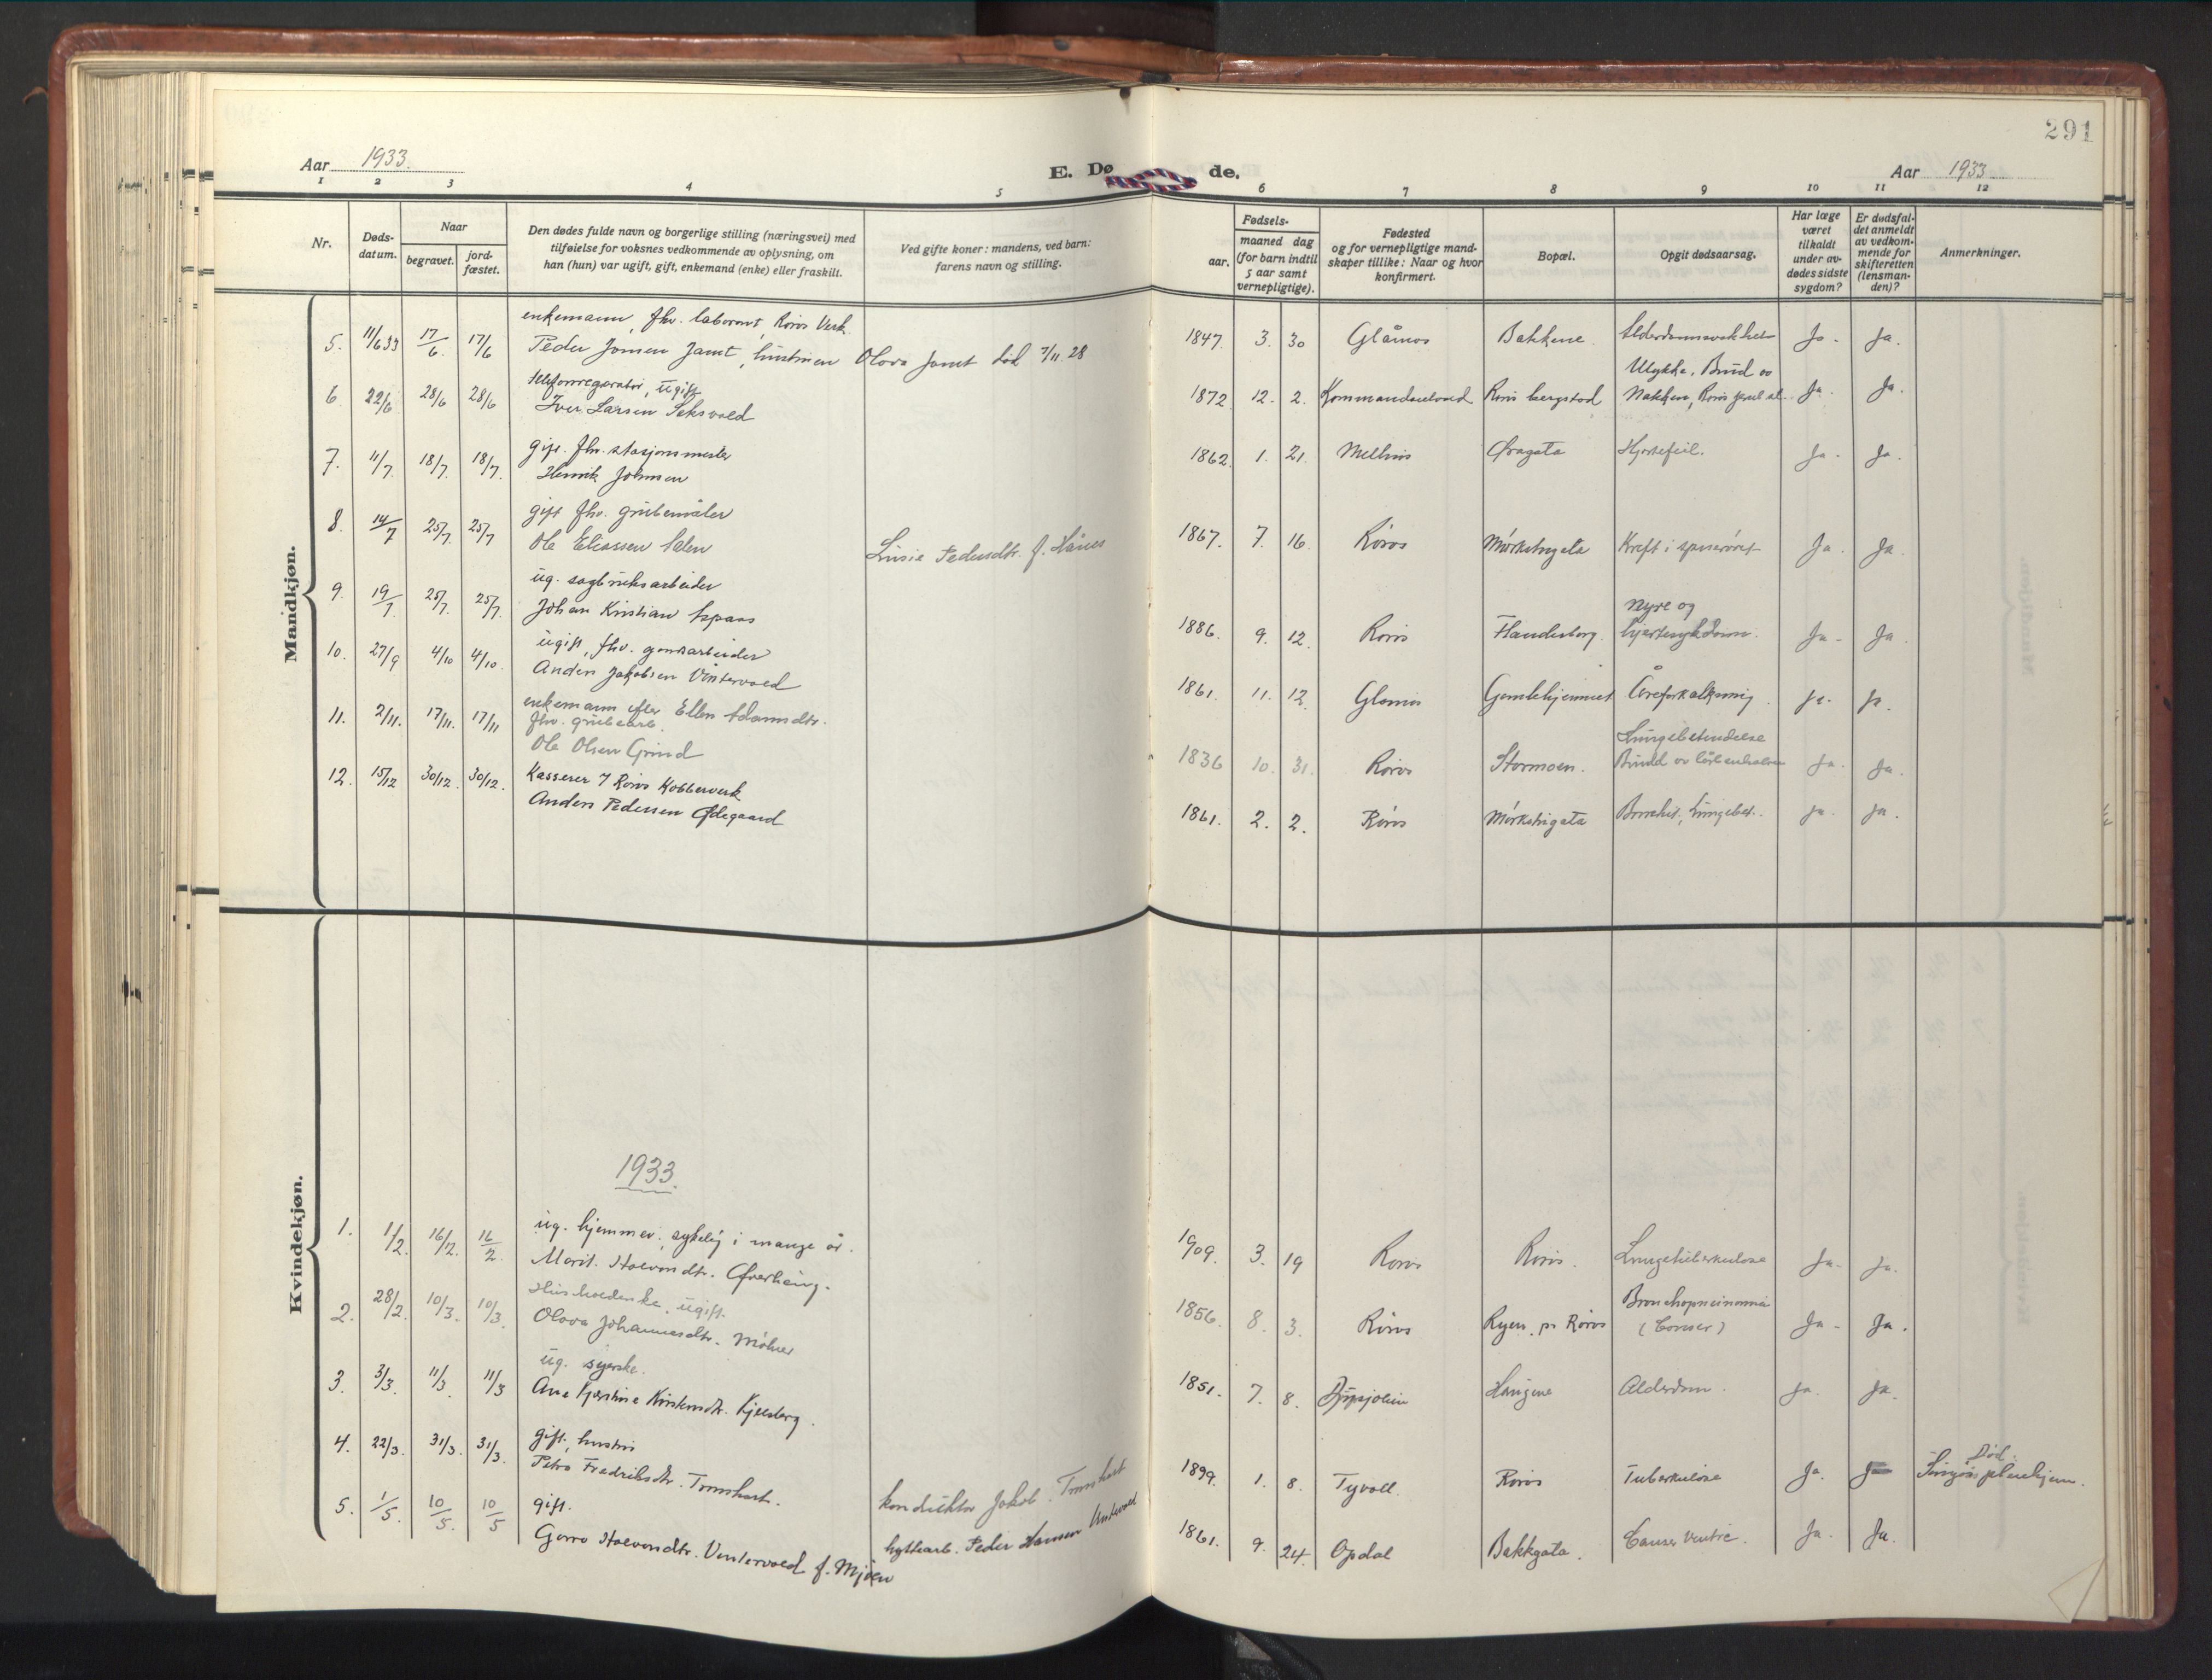 291
Aar 1933.
E. Dø de.
Aar 1933
1 2 3 4 5 6 7 8 9 10 11 12
Nr.
Døds-
datum.
Naar
begravet.
jord-
fæstet.
Den dødes fulde navn og borgerlige stilling (næringsvei) med
tilføielse for voksnes vedkommende av oplysning, om
han (hun) var ugift, gift, enkemand (enke) eller fraskilt.
Ved gifte koner: mandens, ved barn:
farens navn og stilling.
Fødsels-
aar.
maaned dag
(for barn indtil
5 aar samt
vernepligtige).
Fødested
og for vernepligtige mand-
skaper tillike: Naar og hvor
konfirmert.
Bopæl.
Opgit dødsaarsag.
Har læge
været
tilkaldt
under av-
dødes sidste
sygdom?
Er dødsfal-
det anmeldt
av vedkom-
mende for
skifteretten
(lensman-
den)?
Anmerkninger.
Mandkjøn.
enkemann, fhv. laborant, Røros Verk
5. 11/6 33 17/6. 17/6 Peder Jonsen Jamt, hustruen Olava Jamt død 7/11 28 1847. 3. 30 Glåmos Bakkene Alderdomssvakhet Ja. Ja.
telefonreparatør, ugift Ulykke, Brud av
6. 22/6 28/6 28/6 Iver Larsen Seksvold 1872 12. 2. Kommandantvold Røros bergstad Nakken, Røros Ja. Ja.
gift. fhv. stasjonsmester
7. 11/7. 18/7. 18/7. Henrik Johnsen 1862. 1. 21. Melhus Øragata Hjertefeil. Ja. Ja.
gift fhv. grubemåler
8. 14/7 25/7. 25/7 Ole Eliassen Aalen Lusie Pedersdtr. f. 1867. 7. 16. Røros Mørkstugata Kreft i spiserøret Ja. Ja.
ug. sagbruksarbeider Nyre og
9. 19/7 25/7. 25/7. Johan Kristian Aspaas 1886. 9. 12. Røros Flanderborg. hjertesykdom. Ja. Ja.
ugift, fhv. gaardsarbeider
10. 27/9 4/10 4/10. Anders Jakobsen Vintervold 1861. 11. 12. Glåmos Gamlehjemmet Åreforkalkning. ja. ja.
enkemann efter Ellen Adamsdtr.
fhv. grubearb. Lungebetendelse
11. 2/11. 17/11. 17/11 Ole Olsen Grind 1836 10. 31. Røros Stormoen. Brudd av lårbenhalsen Ja. Ja.
12. 15/12 30/12. 30/12. Kasserer v/ Røros Kobberverk
Anders Pedersen Ødegaard 1861. 2. 2. Røros Mørkstugata Bronchit, Lungebet. ja. ja.
Kvindekjøn.
1933.
ug. hjemmev. sykelig i mange år.
1. 1/2. 16/2. 16/2. Marit Halvorsdtr. Øverhaug. 1909. 3. 19 Røros Røros. Lungetuberkulose Ja. Ja.
Husholderske, ugift. Bronchopneumonia
2. 28/2. 10/3. 10/3. Olava Johannesdtr. Mølner 1856. 8. 3. Røros Ryen, pr Røros (Cancer) Ja. Ja.
ug. syerske.
3. 3/3. 11/3. 11/3 Ane Kjerstine Kristensdtr. Kjelsberg. 1851. 7. 8. Djupsjølien Haugene Alderdom. ja. ja.
gift, hustru Død.
4. 22/3. 31/3. 31/3. Petra Fredriksdtr. Tronshart. konduktør Jakob Tronshart 1899. 1. 8. Tyvoll. Røros Tuberkulose Ja. pleiehjem.
gift.
5. 1/5. 10/5. 10/5 Gorro Halvorsdtr. Vintervold f. Mjøen hyttearb. Peder Hansen Vintervold 1861. 9. 24. Opdal Bakkgata. Cancer Ventric. Ja. Ja.